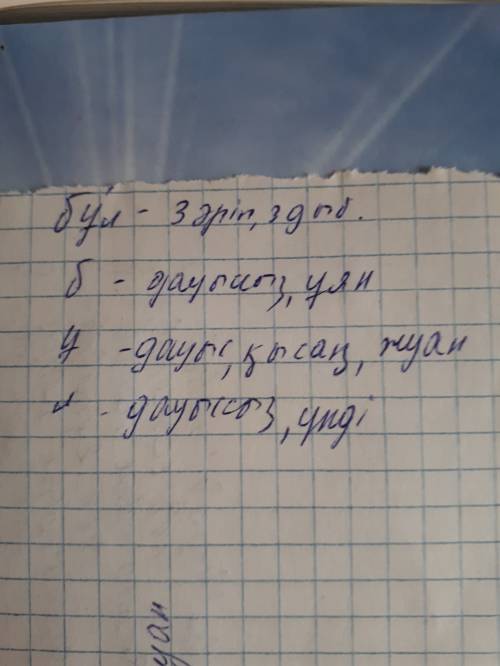 бұл - 3 әріп, 3 дыб.
б - дауыссыз, ұян
ұ - дауыс, қысаң, жуан
л - дауыссыз, үнді
уан